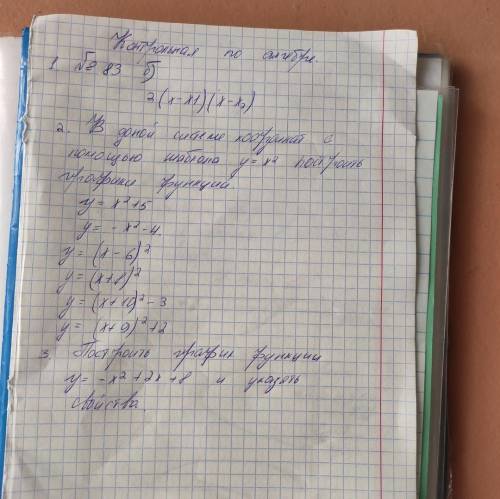 Контрольная по алгебре.
1. № 83 б)
2(x-x1)(x-x₂)
2. В одной системе координат с
помощью шаблона y=x² построить
графики функции.
y = x²+5
y = -x²-4.
y = (x-6)²
y = (x+8)²
y = (x+10)²-3
y = (x+9)²+2
3. Построить график функции
y = -x²+2x+8 и указать
свойства.